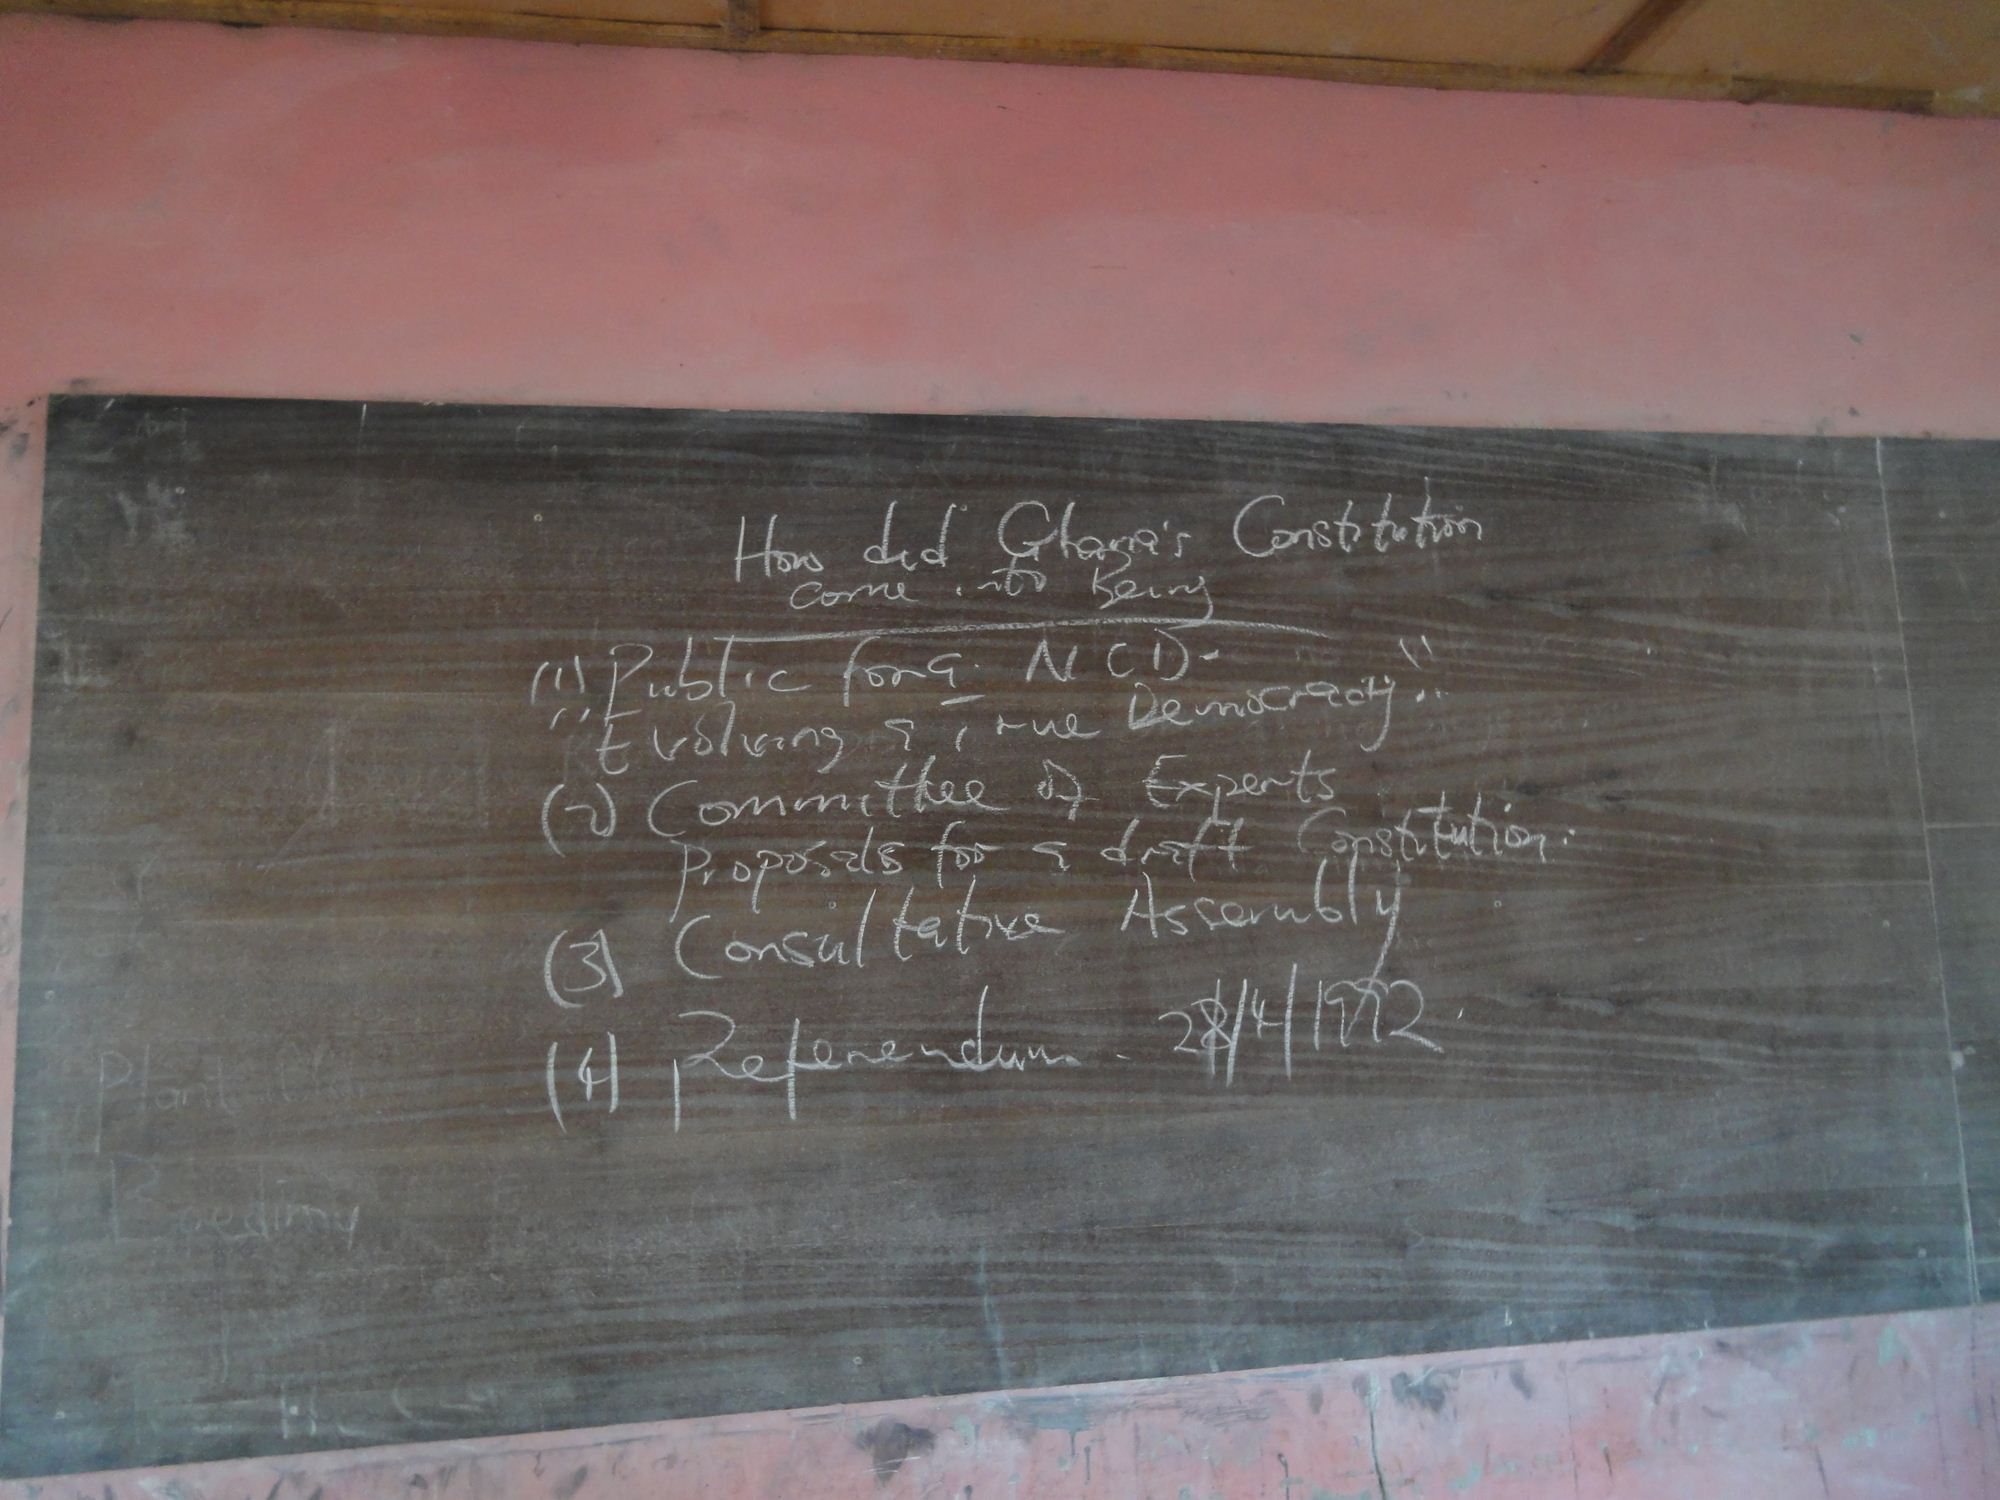 How did Ghana's Constitution
come into Being
(1) Public fora NCD-
"Evolving a True Democracy"
(2) Committee of Experts
Proposals for a draft Constitution.
(3) Consultative Assembly
(4) Referendum. 28/4/1992.